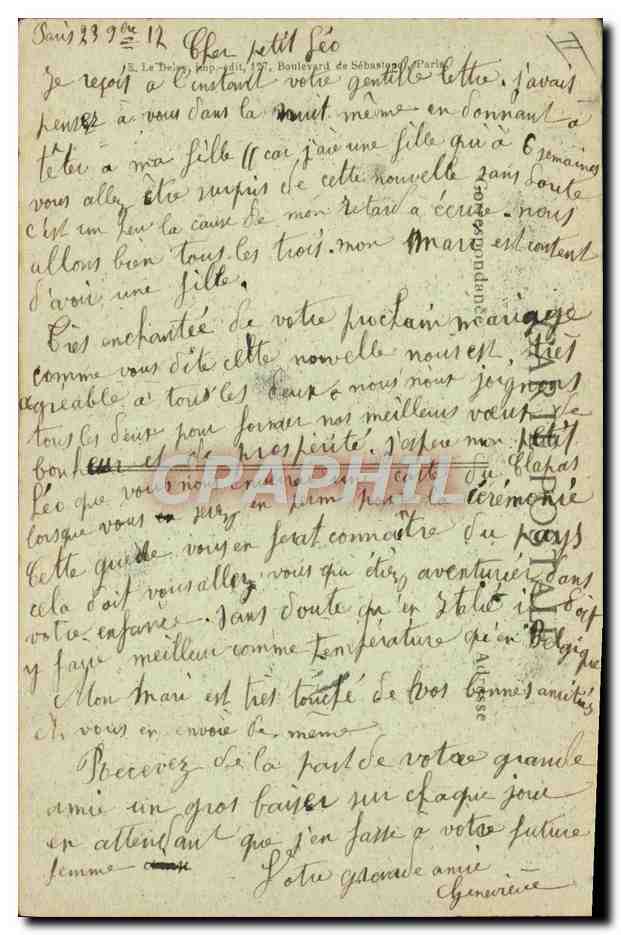 Paris 23 9bre 12
Cher petit Léo
E. Le Deley, imp.-édit, 127, Boulevard de Sébastopol, Paris
II
Je reçois à l'instant votre gentille lettre. j'avais
pensez à vous dans la nuit même en donnant à
têter à ma fille (( car j'aie une fille qui à 6 semaines
vous allez être surpris de cette nouvelle sans doute
c'est un peu la cause de mon retard a écrire. nous
allons bien tous les trois. mon Mari est content
d'avoir une fille.
Très enchantée de votre prochain mariage
comme vous dîte cette nouvelle nous est, très
agréable à tous les deux & nous nous joignons
tous les deux pour former nos meilleurs vœux de
bonheur et de prospérité. j'aspere mon petit
Léo que vous nous enverrez une carte du Clapas
lorsque vous serez en perm pour la cérémonie
Cette guerre vous en ferat connaître du pays
cela doit vous allez, vous qui étiez aventurier dans
votre enfance. Sans doute qu'en Italie il doit
y faire meilleur comme température qu'en Belgique
Mon Mari est très touché de vos bonnes amitiés
et vous en envoie de même
Recevez de la part de votre grande
amie un gros baiser sur chaque joue
en attendant que j'en fasse à votre future
femme
Votre grande amie
Geneviève
CARTE POSTALE
Correspondance
Adresse
CPAPHIL